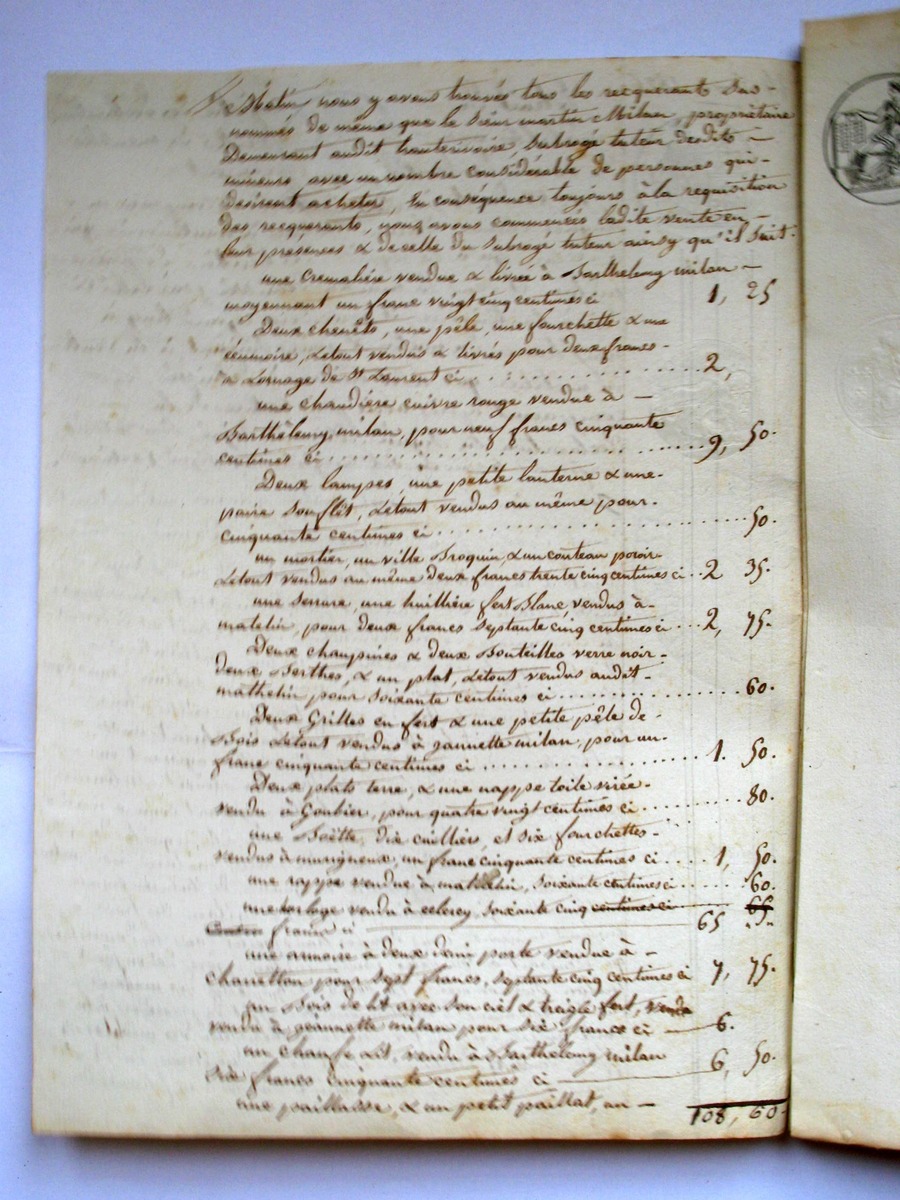 Matin nous y avons trouvés tous les recquerants sus-
nommés de même que le sieur martin Milan, propriétaire
Demeurant audit hauterivoire Subrogé tuteur desdits -
mineurs avec un nombre considérable de personnes qui -
desirent acheter, En conséquence toujours à la requisition
des recquerants, nous avons commencés ladite vente en -
leur presences & de celle du subrogé tuteur ainsy qu'il suit.
une Cremalière vendue & livrée à Barthelemy milan -
moyennant un franc vingt cinq centimes ci 1, 25
Deux chenêts, une pêle, une fourchette & une
écumoire, Letout vendus & livrés pour deux francs -
à Lornage de St Laurent ci .......... 2,
une chaudière cuivre rouge vendue à -
Barthélemy milan, pour neuf francs cinquante
centimes ci .......... 9, 50.
Deux lampes, une petite lanterne & une -
paire souflêt, Letout vendus au même pour -
cinquante centimes ci .......... 50.
un mortier, un ville Broquin, & un couteau
Letout vendus au même deux francs trente cinq centimes ci .. 2 35.
une serrure, une huillière fert Blanc, vendus à -
mathelin, pour deux francs septante cinq centimes ci ... 2, 75.
Deux chaupines & deux Bouteilles verre noir -
deux Berthes, & un plat, Letout vendus audit -
mathelin pour soixante centimes ci .......... 60.
Deux Grilles en fert & une petite pêle de -
Bois Letout vendus à jannette milan, pour un -
franc cinquante centimes ci .......... 1. 50.
Deux plats terre, & une nappe toile
vendu à Goubier, pour quatre vingt centimes ci ....... 80.
une Boëtte, dix cuilliers, et six fourchettes -
vendus à murigneux, un franc cinquante centimes ci .... 1, 50.
une rappe vendue à mathelin, soixante centimes ci ...... 60.
une horloge vendu à celercy, soixante cinq centimes ci 65
francs ci 65 " "
une armoire à deux demi porte vendue à -
chanetton pour sept francs, septante cinq centimes ci 7, 75.
un Bois de lit avec son ciel & treigle fert,
vendu à jeannette milan pour six francs ci — 6.
un chaufe Lit, vendu à Barthélemy milan
six francs cinquante centimes ci — 6, 50.
une paillasse, & un petit paillat, un -
108, 60